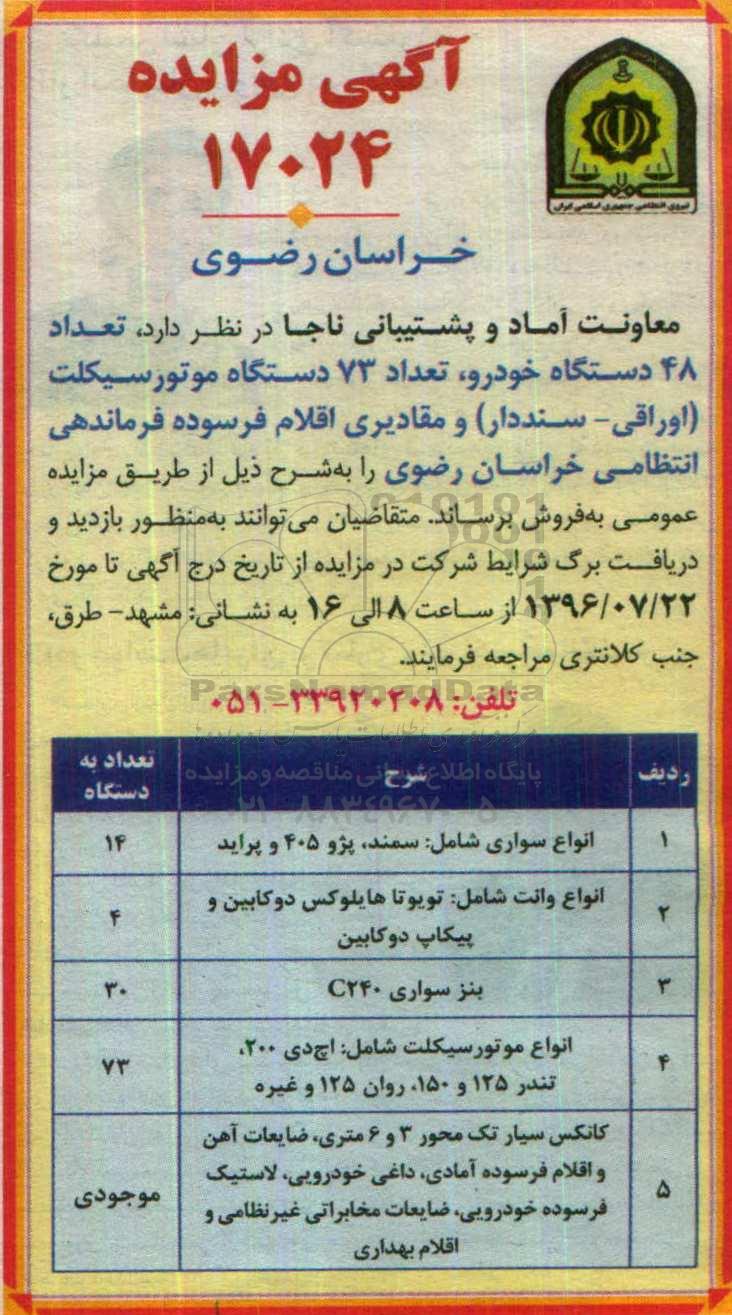 آگهی مزایده
۱۷۰۲۴
نیروی انتظامی جمهوری اسلامی ایران
خراسان رضوی
معاونت آماد و پشتیبانی ناجا در نظر دارد، تعداد
۴۸ دستگاه خودرو، تعداد ۷۳ دستگاه موتورسیکلت
(اوراقی- سنددار) و مقادیری اقلام فرسوده فرماندهی
انتظامی خراسان رضوی را به‌شرح ذیل از طریق مزایده
عمومی به‌فروش برساند. متقاضیان می‌توانند به‌منظور بازدید و
دریافت برگ شرایط شرکت در مزایده از تاریخ درج آگهی تا مورخ
۱۳۹۶/۰۷/۲۲ از ساعت ۸ الی ۱۶ به نشانی: مشهد- طرق،
جنب کلانتری مراجعه فرمایند.
تلفن: ۳۳۹۲۰۲۰۸-۰۵۱
ParsNamadData
پایگاه اطلاع رسانی مناقصه و مزایده
۰۲۱-۸۸۳۴۹۶۷۰-۵
ردیف شرح تعداد به دستگاه
۱ انواع سواری شامل: سمند، پژو ۴۰۵ و پراید ۱۴
۲ انواع وانت شامل: تویوتا هایلوکس دوکابین و
پیکاپ دوکابین ۴
۳ بنز سواری C۲۴۰ ۳۰
۴ انواع موتورسیکلت شامل: اچ‌دی ۲۰۰،
تندر ۱۲۵ و ۱۵۰، روان ۱۲۵ و غیره ۷۳
۵ کانکس سیار تک محور ۳ و ۶ متری، ضایعات آهن
و اقلام فرسوده آمادی، داغی خودرویی، لاستیک
فرسوده خودرویی، ضایعات مخابراتی غیرنظامی و
اقلام بهداری موجودی